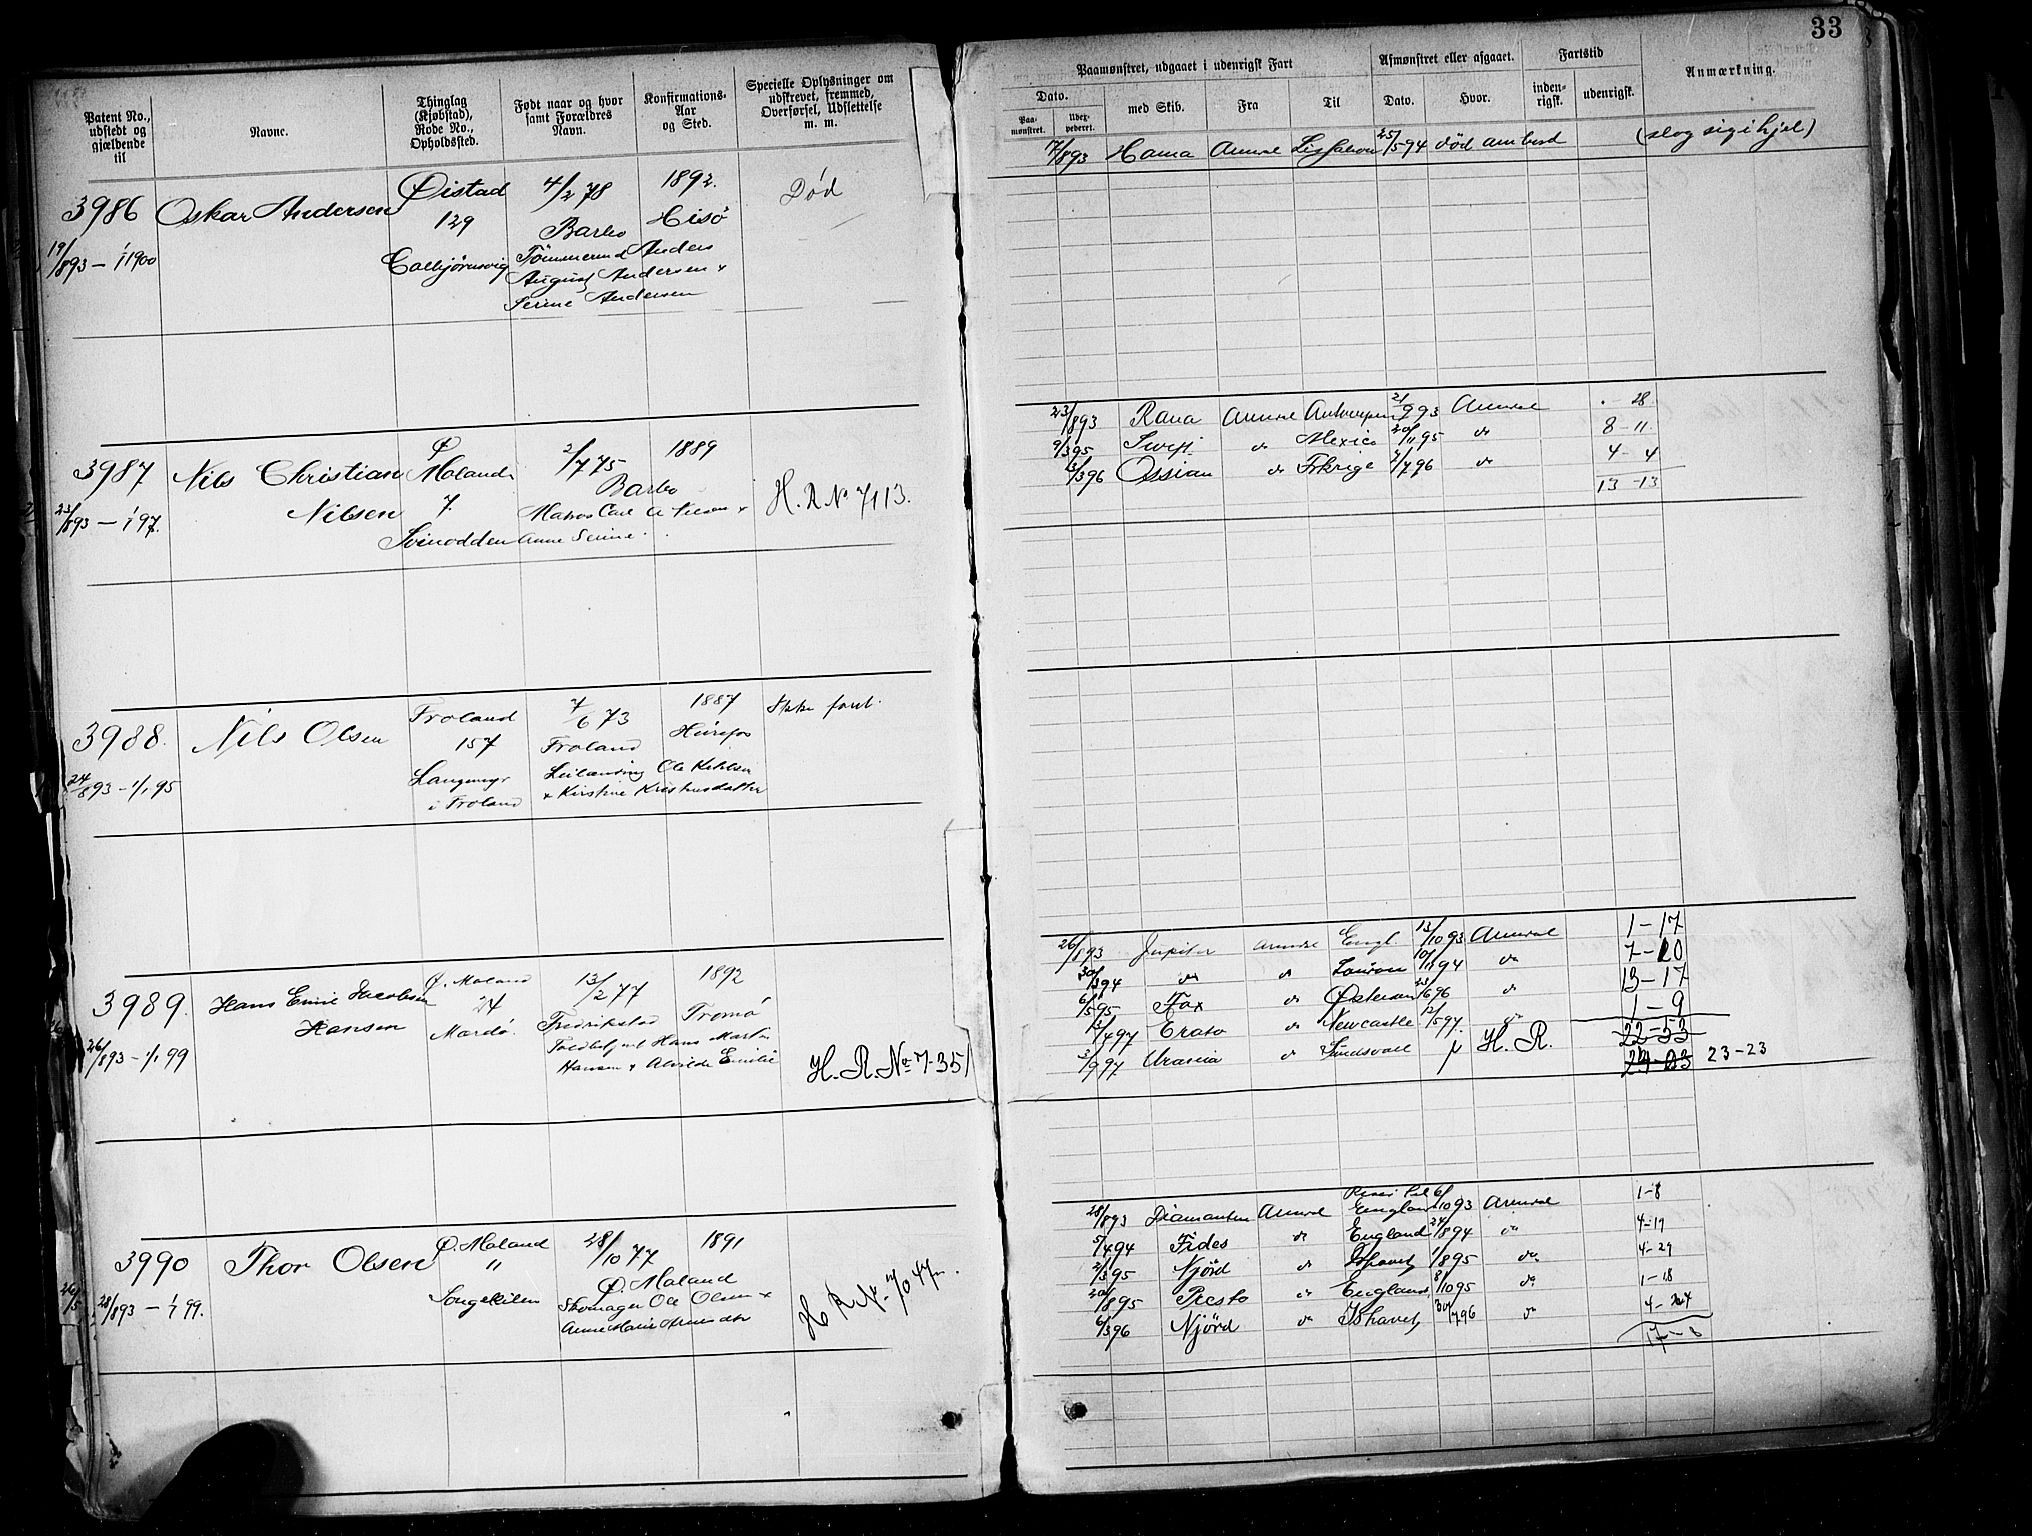 33
Patent No., udstedt og gjældende til
Navne.
Thinglag (Kjøbstad), Rode No., Opholdssted.
Født naar og hvor samt Forældres Navn.
Konfirmations-Aar og Sted.
Specielle Oplysninger om udskrevet, fremmed, Overførsel, Udslettelse m. m.
Paamønstret, udgaaet i udenrigsk Fart
Afmønstret eller afgaaet.
Fartstid
Anmærkning.
Dato.
Paa-mønstret.
Udex-pederet.
med Skib.
Fra
Til
Dato.
Hvor.
inden-rigsk.
udenrigsk.
3986 Oskar Andersen Øistad 4/2 78 1892. Død
129 Barbo Hisö
19/893 – 1/1 1900 Colbjörnsvig Tömmermd Anders
August Andersen +
Serine Andersen
7/893 Hama Arendal Lissabon 25/594 død ombord (slog sig ihjel)
3987 Nils Christian Nilsen Ø Moland 2/7 75 1889
7. Barbo H. R. No 7113.
23/893 – 1/1 97. Svinodden Matros Carl A Nilsen +
Anne Serine.
23/893 Rana Arendal Antwerpen 21/9 93 Arendal . – 28
9/395 do Mexico 20/1195 do 8 – 11
13/396 Ossian do 2/796 do 4 – 4
13 – 13
3988. Nils Olsen Froland 7/6 73 1887 Ikke faret.
157 Froland
24/893 – 1/1 95 Langemyr i Froland Leilænding Ole
+ Kirstine
3989. Hans Emil Jacobsen Hansen Ø. Moland 13/2 77 1892
24 Fredrikstad Tromö
26/893 – 1/1 99 Mardö. Hans Martin
Hansen + Alvilde Emilie H. R. No 7351
26/893 Jupiter Arendal Engl. 13/1093 Arendal 1 – 17
30/394 do do London 10/1194 do 7 – 20
6/595 Fax do 23/696 do 13 – 17
13/497 Erato do Newcastle 12/597. do 1 – 9
3/997 Urania do Sundsvall H. R. 22 – 53
23 – 23
3990 Thor Olsen Ø. Moland 28/10 77 1891
" Ø. Moland
28/893 – 1/1 99. Songekilen Skomager Ole Olsen +
Anne Marie H R No 7047.
28/893 Diamanten Arendal England 6/1093 Arendal 1–8
5/494 Fides do England 24/894 do 4–19
2/395 Njörd do Ishavet 1/895 do 4–29
20/895 Presto do England 8/1095 do 1–18
6/396 Njörd do Ishavet 30/796 do 4–24
17 –